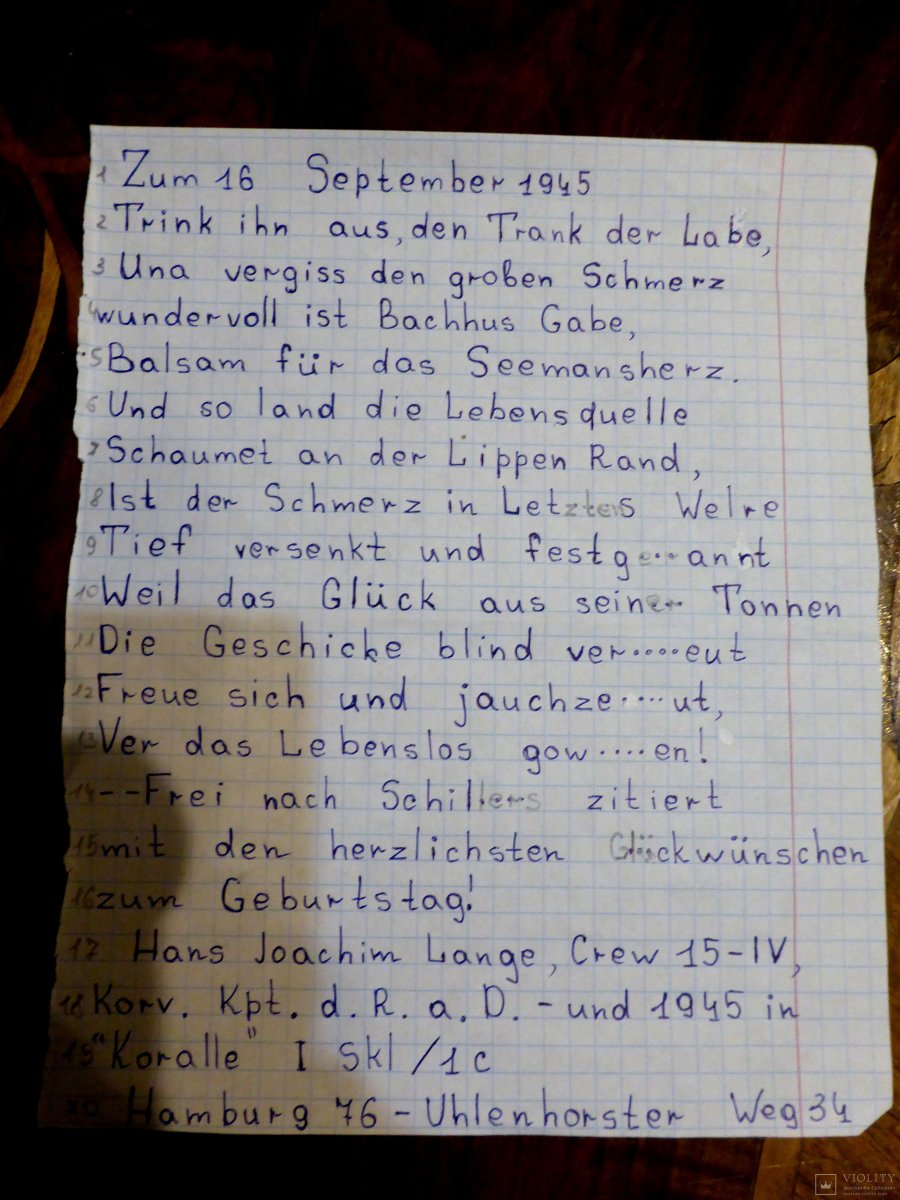 1 Zum 16 September 1945
2 Trink ihn aus, den Trank der Labe,
3 Una vergiss den groben Schmerz
4 wundervoll ist Bachhus Gabe,
5 Balsam für das Seemansherz.
6 Und so land die Lebensquelle
7 Schaumet an der Lippen Rand,
8 Ist der Schmerz in Letztes Welre
9 Tief versenkt und festg....annt
10 Weil das Glück aus seiner Tonnen
11 Die Geschicke blind ver.....eut
12 Freue sich und jauchze.....ut,
13 Ver das Lebenslos gow.....en!
14 --Frei nach Schillers zitiert
15 mit den herzlichsten Glückwünschen
16 zum Geburtstag!
17 Hans Joachim Lange, Crew 15-IV,
18 Korv. Kpt. d. R. a. D. - und 1945 in
19 "Koralle" I Skl /1c
20 Hamburg 76 - Uhlenhorster Weg 34
VIOLITY
Auction for Collectors